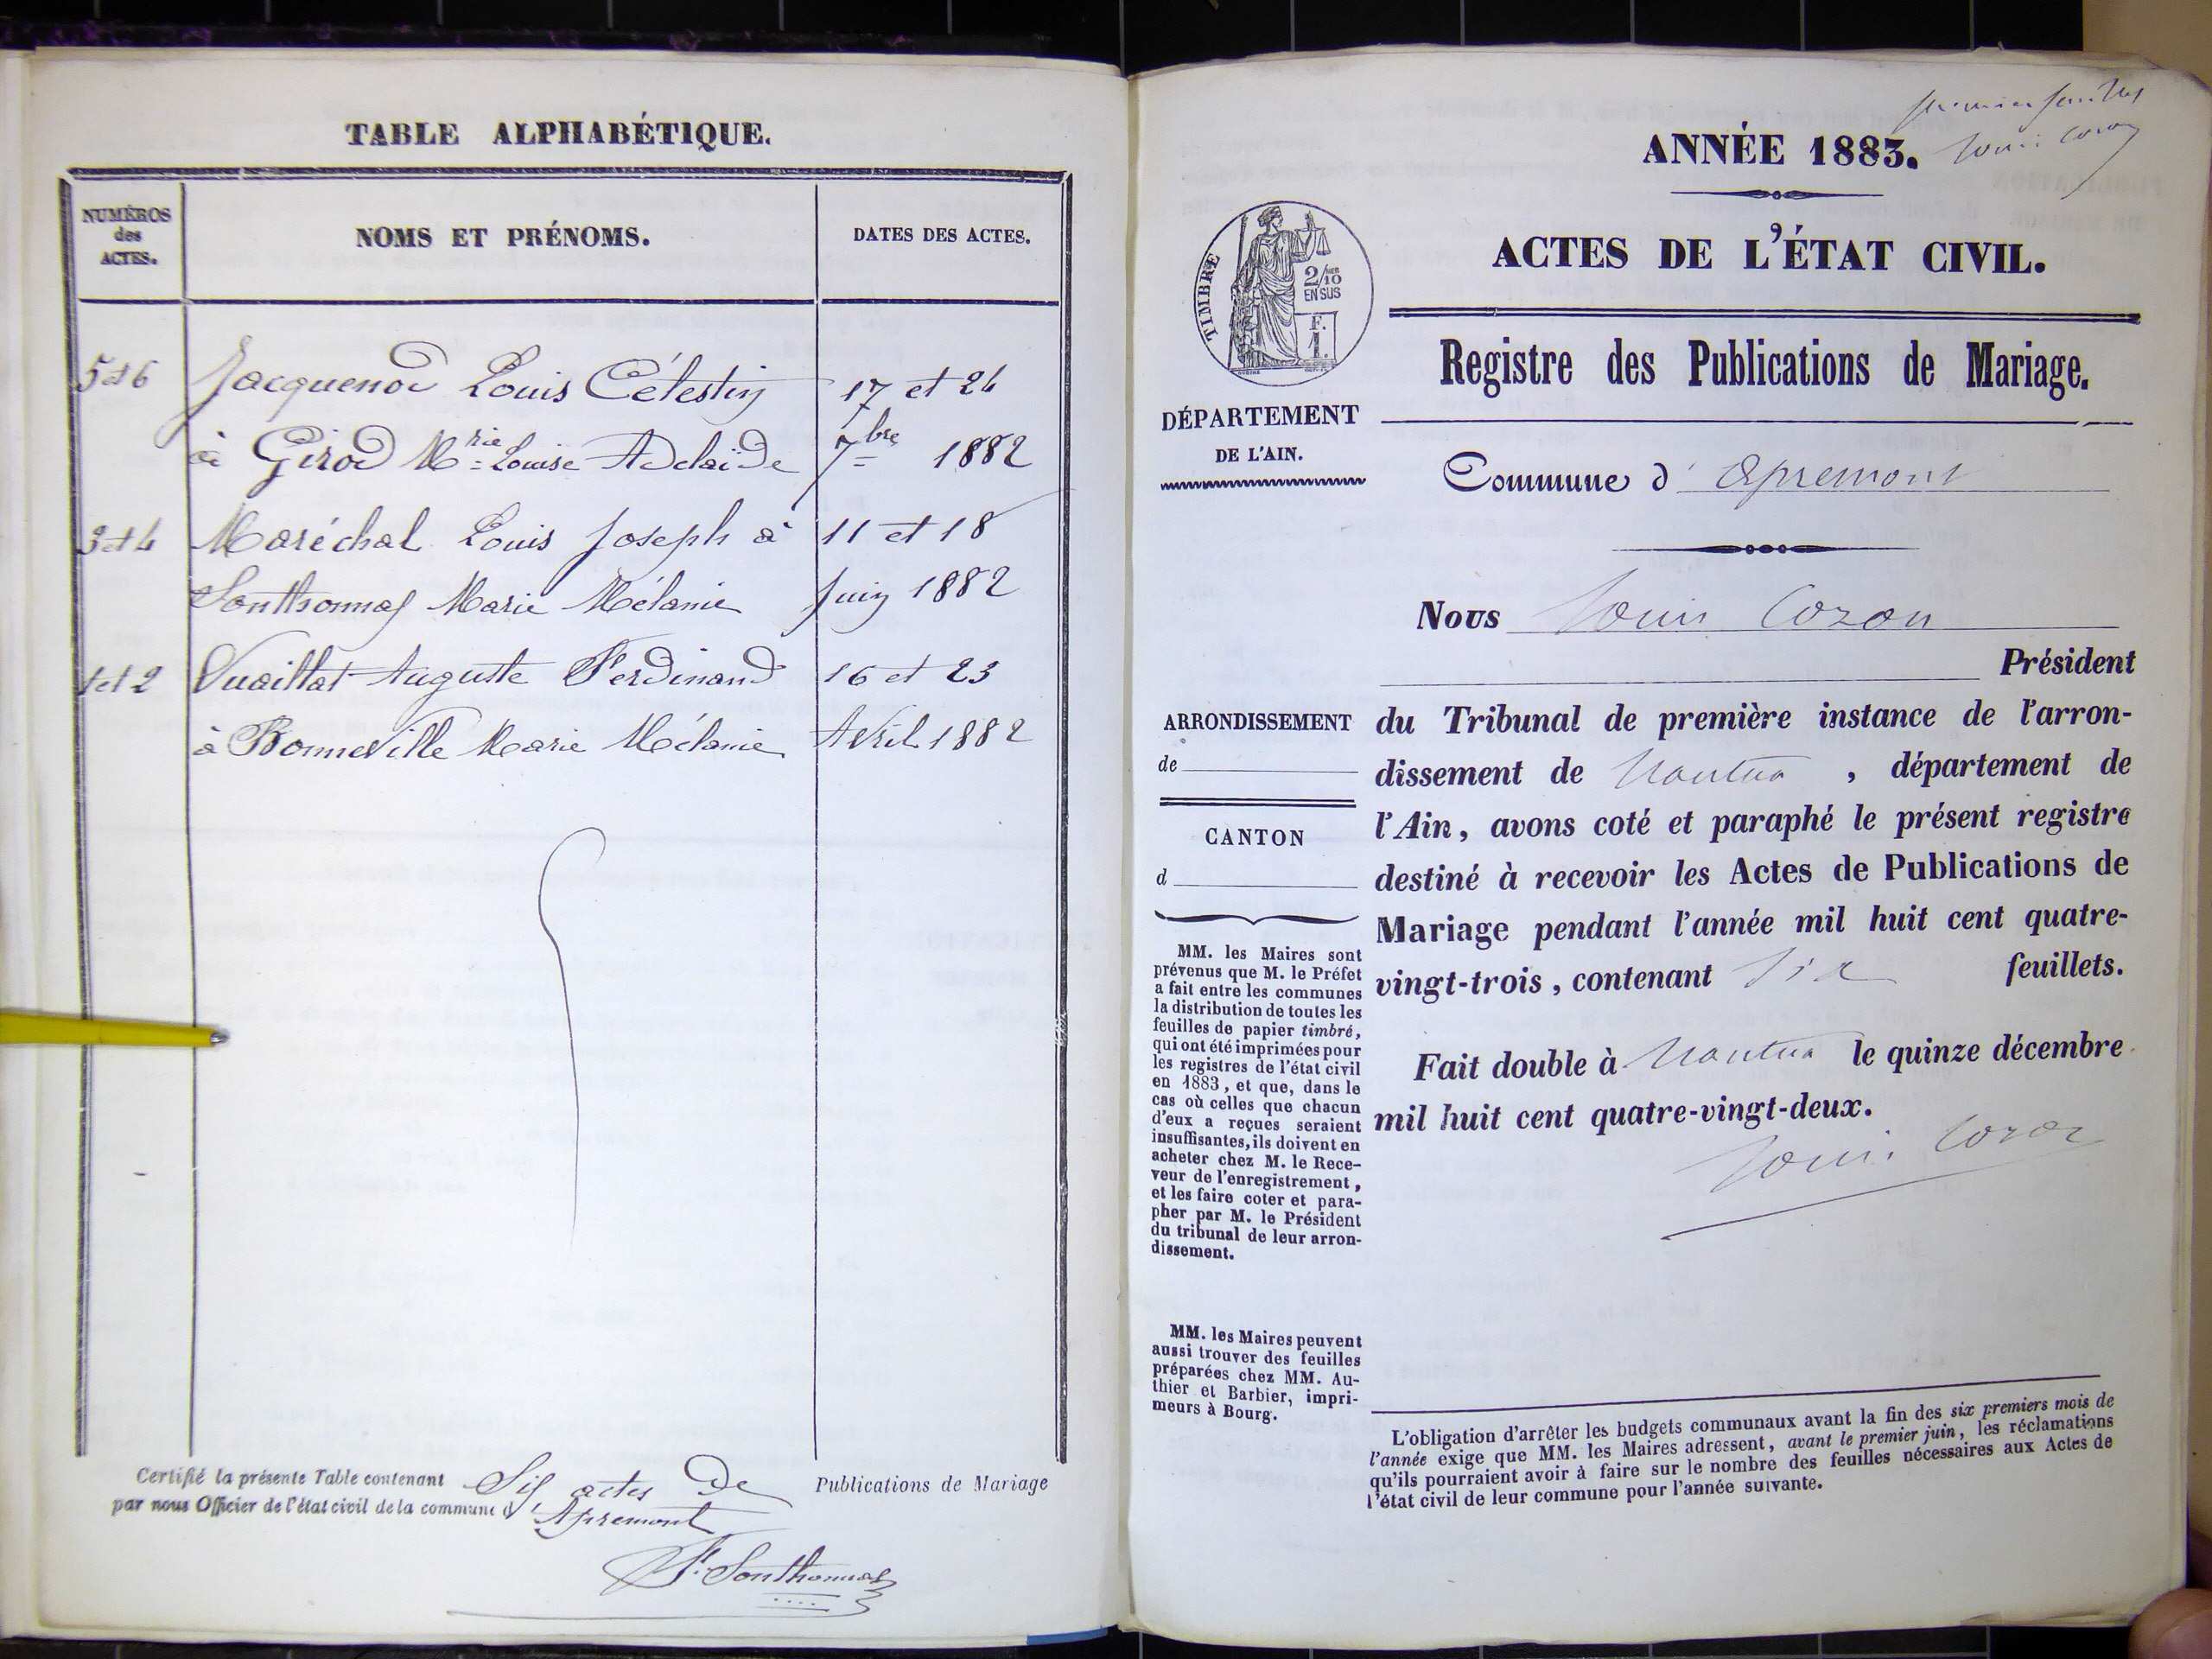 TABLE ALPHABÉTIQUE.
NUMÉROS
des
ACTES.
NOMS ET PRÉNOMS.
DATES DES ACTES.
5 et 6 Jacquenod Louis Célestin 17 et 24
à Girod Mrie Louise Adelaïde 7bre 1882
3 et 4 Maréchal Louis Joseph à 11 et 18
Sonthonnax Marie Mélanie Juin 1882
1 et 2 Vuaillat Auguste Ferdinand 16 et 23
à Bonneville Marie Mélanie Avril 1882
Certifié la présente Table contenant Six actes de Publications de Mariage
par nous Officier de l'état civil de la commune d'Apremont
Sonthonnax
premier feuillet
Louis Cozon
ANNÉE 1883.
ACTES DE L'ÉTAT CIVIL.
TIMBRE
2/10
EN SUS
F.
1.
Registre des Publications de Mariage.
DÉPARTEMENT
DE L'AIN.
Commune d' Apremont
Nous Louis Cozon
Président
du Tribunal de première instance de l'arron-
dissement de Nantua, département de
l'Ain, avons coté et paraphé le présent registre
destiné à recevoir les Actes de Publications de
Mariage pendant l'année mil huit cent quatre-
vingt-trois, contenant six feuillets.
Fait double à Nantua le quinze décembre
mil huit cent quatre-vingt-deux.
Louis Cozon
ARRONDISSEMENT
de
CANTON
d
MM. les Maires sont
prévenus que M. le Préfet
a fait entre les communes
la distribution de toutes les
feuilles de papier timbré,
qui ont été imprimées pour
les registres de l'état civil
en 1883, et que, dans le
cas où celles que chacun
d'eux a reçues seraient
insuffisantes, ils doivent en
acheter chez M. le Rece-
veur de l'enregistrement,
et les faire coter et para-
pher par M. le Président
du tribunal de leur arron-
dissement.
MM. les Maires peuvent
aussi trouver des feuilles
préparées chez MM. Au-
thier et Barbier, impri-
meurs à Bourg.
L'obligation d'arrêter les budgets communaux avant la fin des six premiers mois de
l'année exige que MM. les Maires adressent, avant le premier juin, les réclamations
qu'ils pourraient avoir à faire sur le nombre des feuilles nécessaires aux Actes de
l'état civil de leur commune pour l'année suivante.